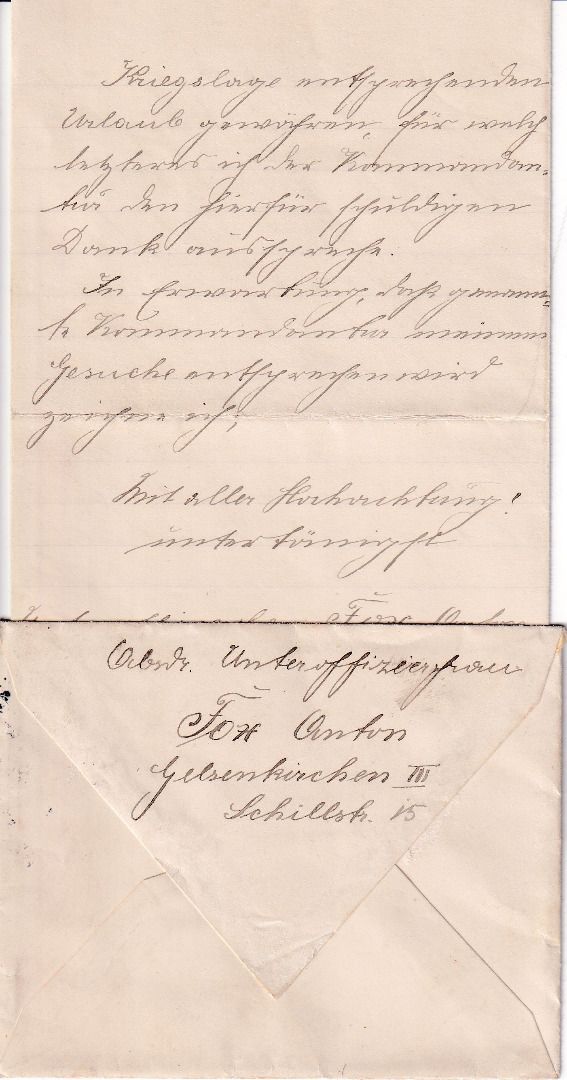 Kriegslage entsprechenden
Urlaub gewähren, für welch
letzteres ich der Kommandan-
tur den hierfür schuldigen
Dank ausspreche.
In Erwartung, daß genann-
te Kommandantur meinem
Gesuche entsprechen wird
zeichne ich,
Mit aller Hochachtung!
untertänigst
Fox Anton
Absdr. Unteroffiziersfrau
Fox Anton
Gelsenkirchen III
Schillstr. 15